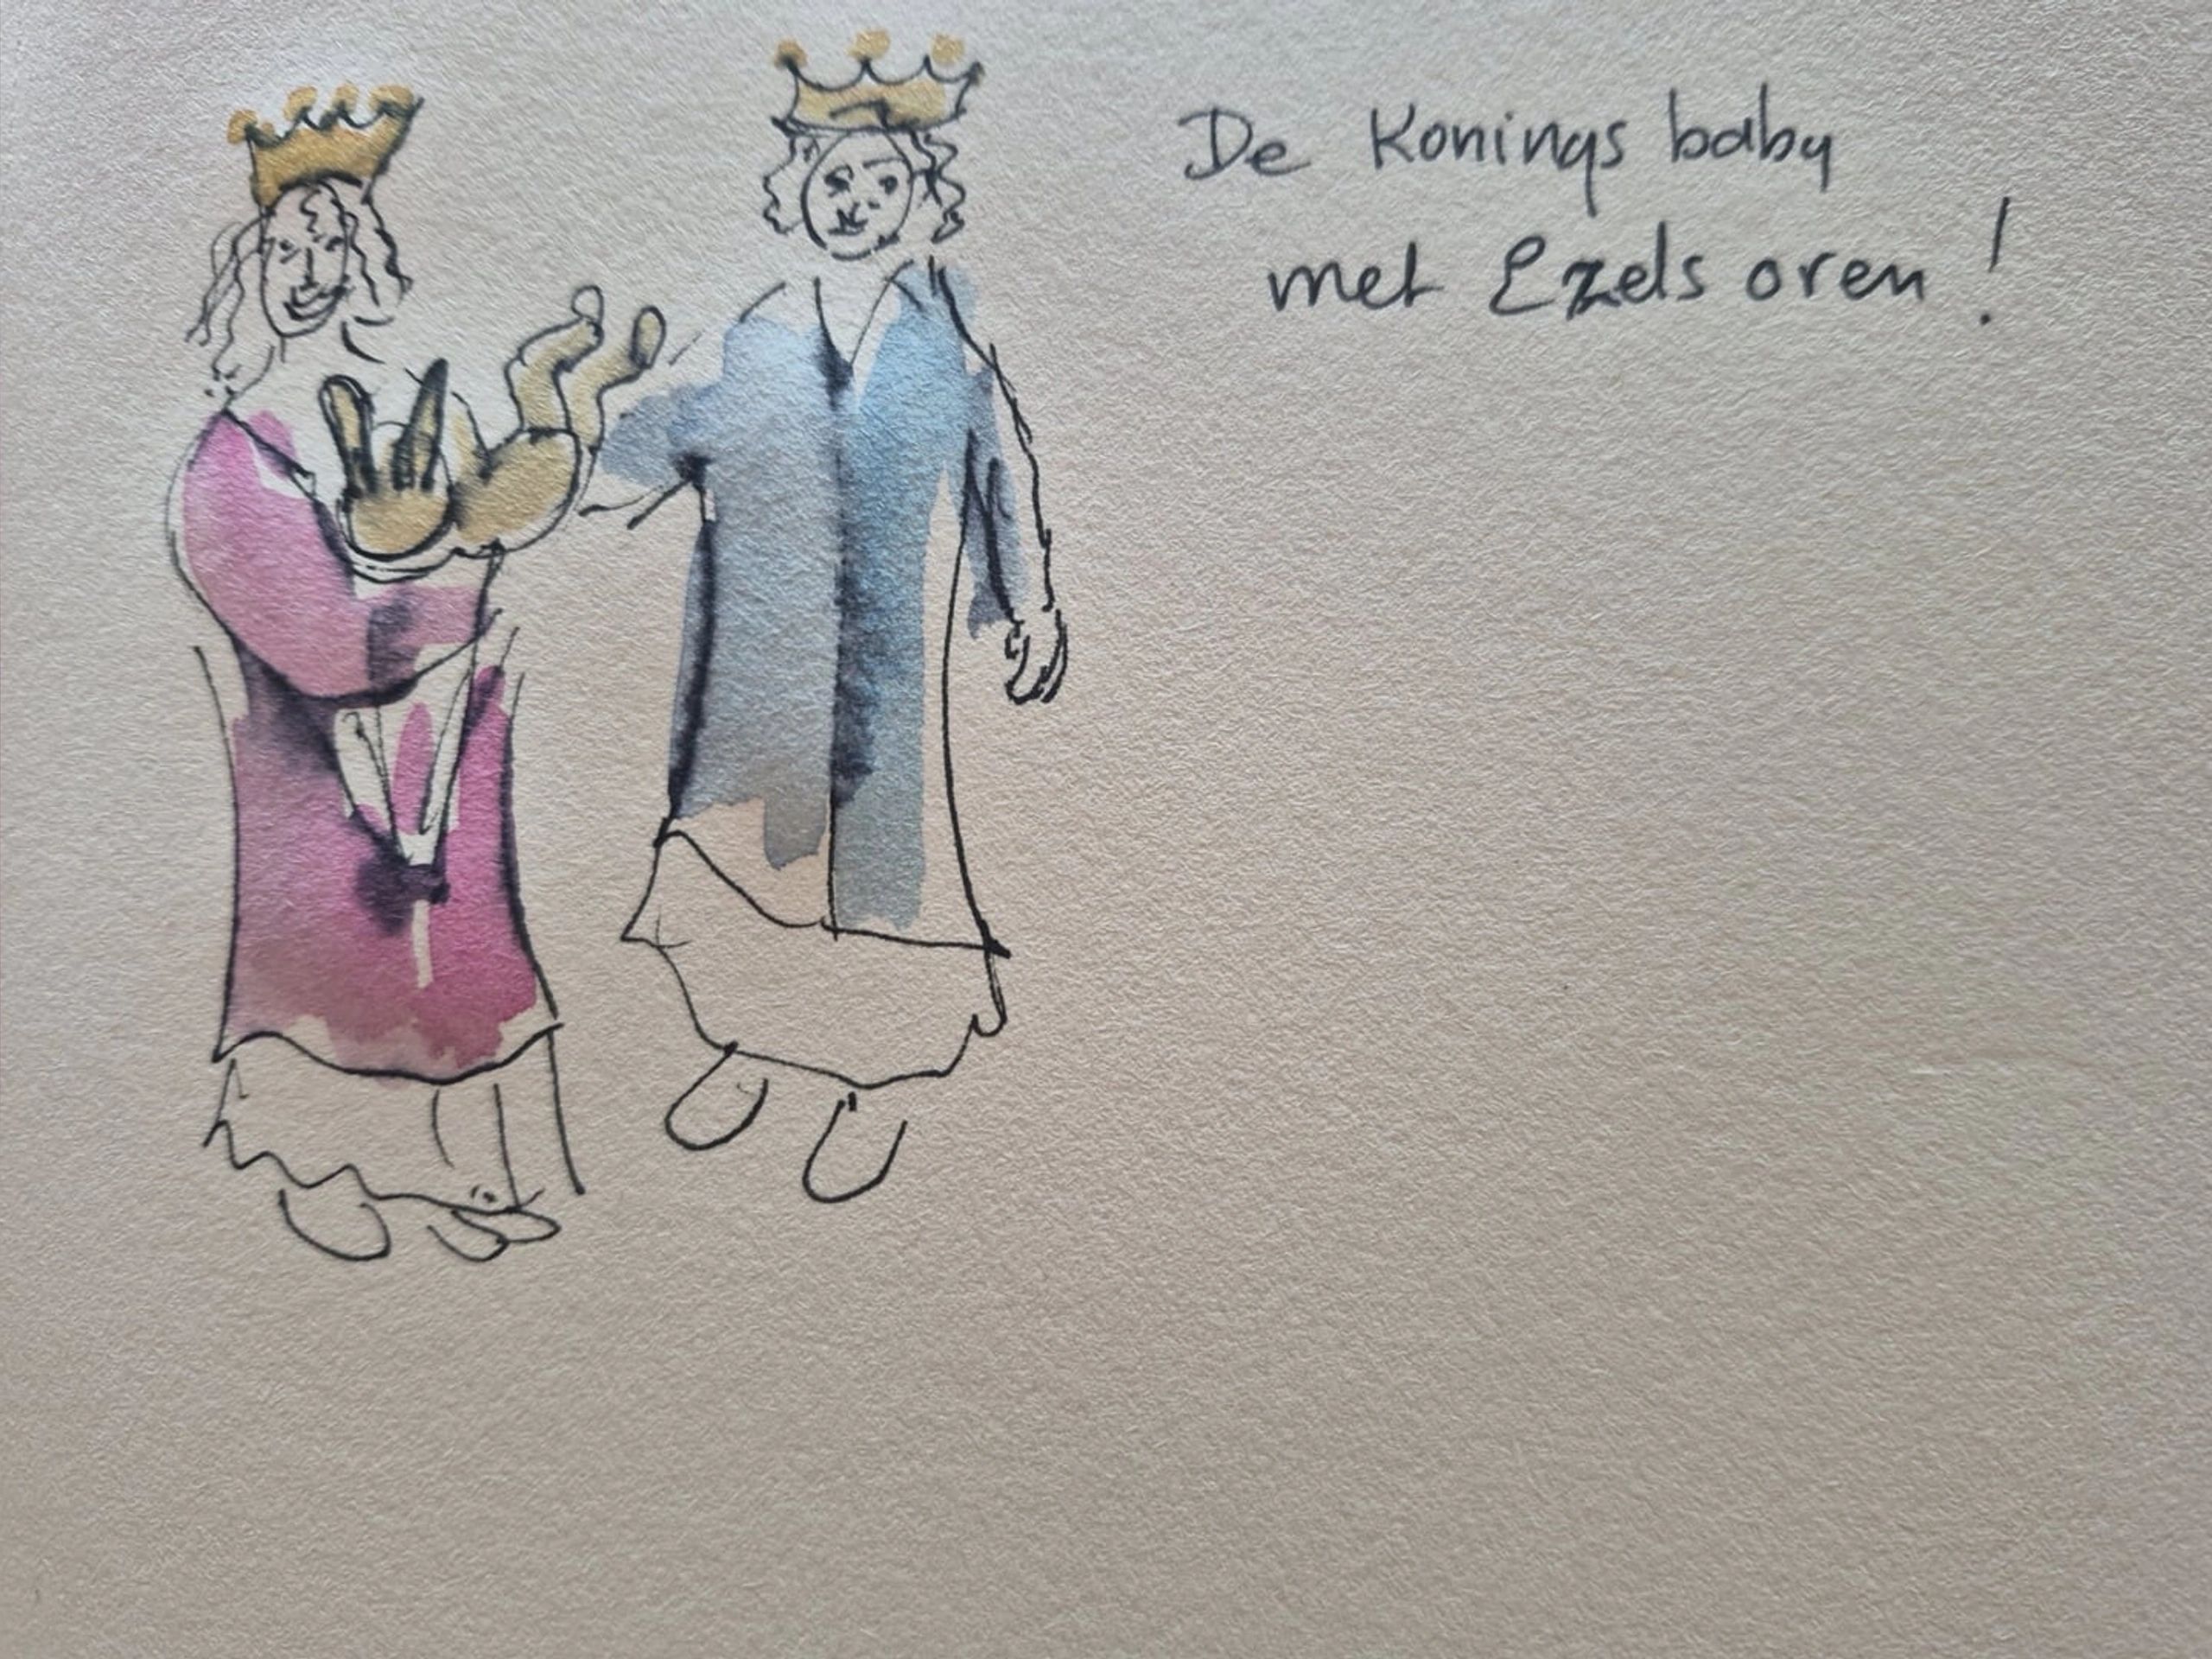 De Konings baby
met Ezels oren!